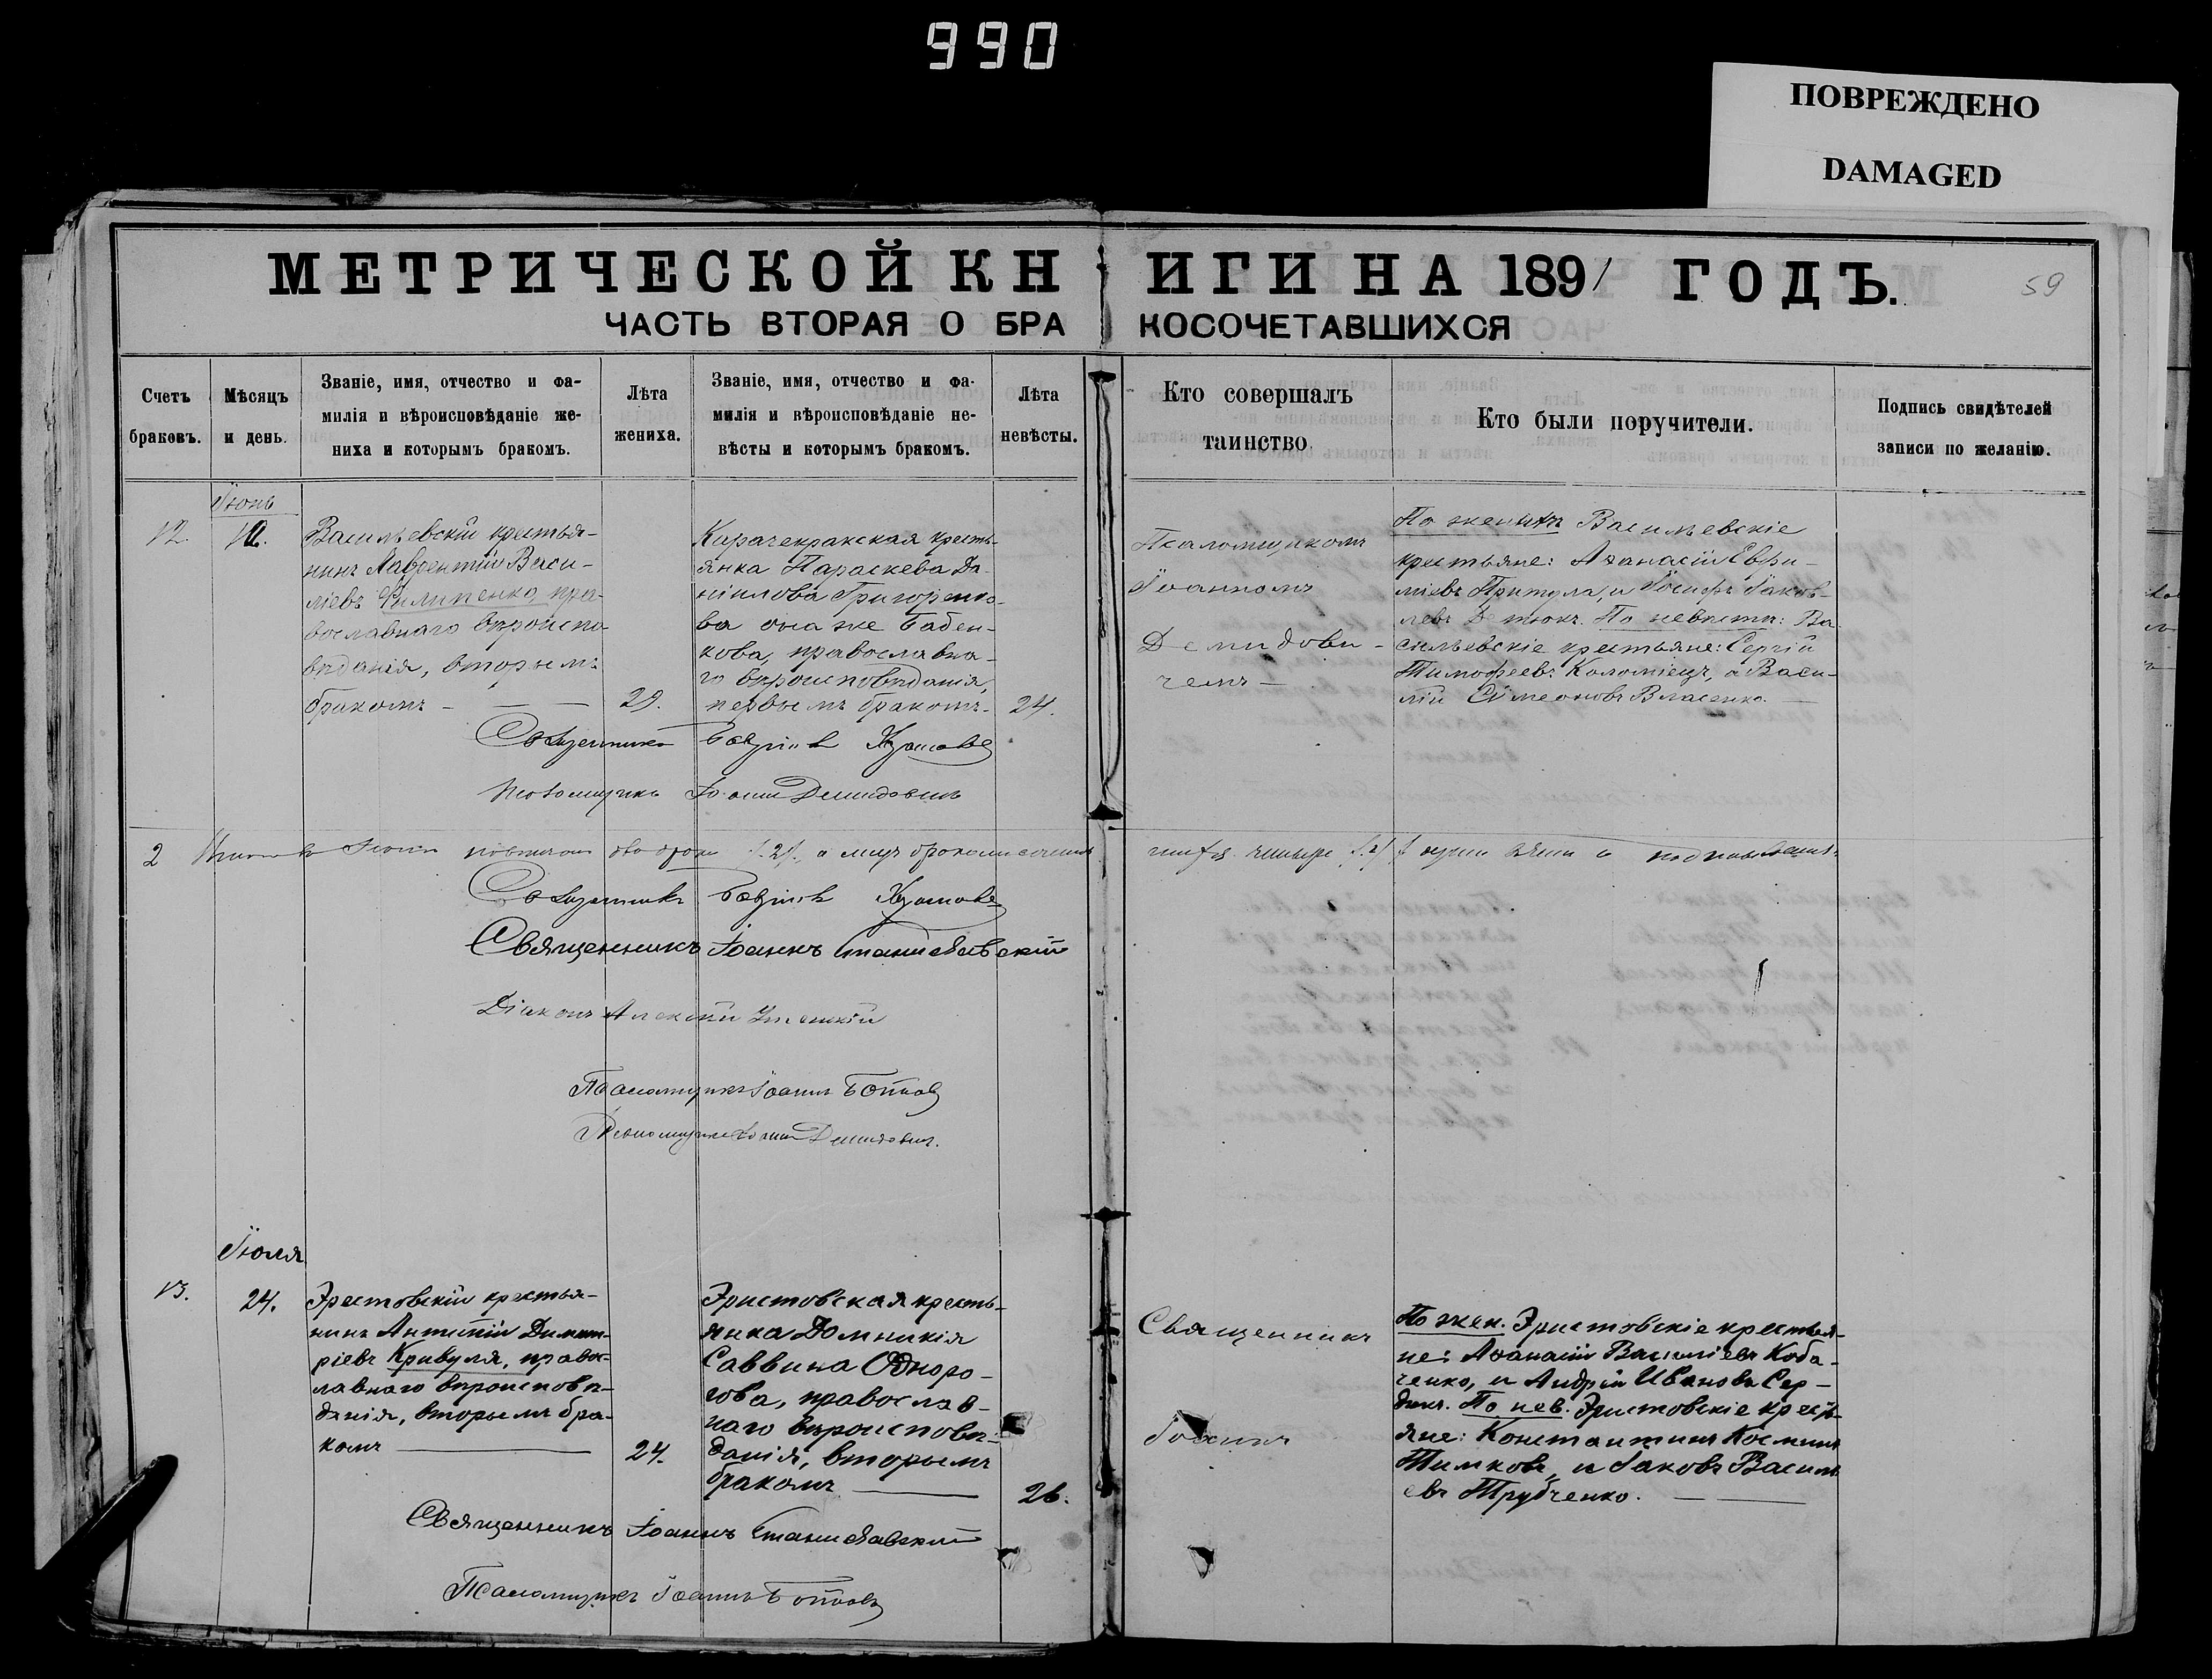 990
ПОВРЕЖДЕНО
DAMAGED
МЕТРИЧЕСКОЙ КНИГИ НА 1891 ГОДЪ.
59
ЧАСТЬ ВТОРАЯ О БРАКОСОЧЕТАВШИХСЯ
Счетъ
браковъ.
Мѣсяцъ
и день.
Званіе, имя, отчество и фа-
милія и вѣроисповѣданіе же-
ниха и которымъ бракомъ.
Лѣта
жениха.
Званіе, имя, отчество и фа-
милія и вѣроисповѣданіе не-
вѣсты и которымъ бракомъ.
Лѣта
невѣсты.
Кто совершалъ
таинство.
Кто были поручители.
Подпись свидѣтелей
записи по желанію.
Іюнь
12.
Васильевскій крестья-
нинъ Лаврентій Васи-
ліевъ Филипенко, пра-
вославнаго вѣроиспо-
вѣданія, вторымъ
бракомъ —
29.
Карачекракская кресть-
янка Параскева Да-
ніилова Григоренко-
ва она же Бабен-
кова, православна-
го вѣроисповѣданія,
первымъ бракомъ.
24.
Псаломщикомъ
Іоанномъ
Демидови-
чемъ —
По женихѣ Васильевскіе
крестьяне: Аѳанасій Евѳи-
міевъ Притула, и Іосифъ Іаков-
левъ Детюкъ. По невѣстѣ: Ва-
сильевскіе крестьяне: Сергій
Тимофеевъ Коломіецъ, а Васи-
лій Симеоновъ Власенко. —
Священникъ
Псаломщикъ Іоаннъ Демидовичъ
2
Священникъ
Священникъ Іоаннъ Станиславскій
Діаконъ Алексій
Псаломщикъ Іоаннъ
Псаломщикъ Іоаннъ Демидовичъ.
Іюля
13.
24.
Эристовскій крестья-
нинъ Антипій Димит-
ріевъ Кривуля, правос-
лавнаго вѣроисповѣ-
данія, вторымъ бра-
комъ —
24.
Эристовская кресть-
янка Домникія
Саввина Одноро-
гова, православ-
наго вѣроисповѣ-
данія, вторымъ
бракомъ —
26.
Священникъ
Іоаннъ
По жен. Эристовскіе крестья-
не: Аѳанасій Василіевъ Коба-
ченко, и Андрій Ивановъ Сер-
дюкъ. По нев. Эристовскіе кресть-
яне: Константинъ Косминъ
Тимковъ, и Іаковъ Василь-
евъ Трубченко. —
Священникъ Іоаннъ Станиславскій
Псаломщикъ Іоаннъ